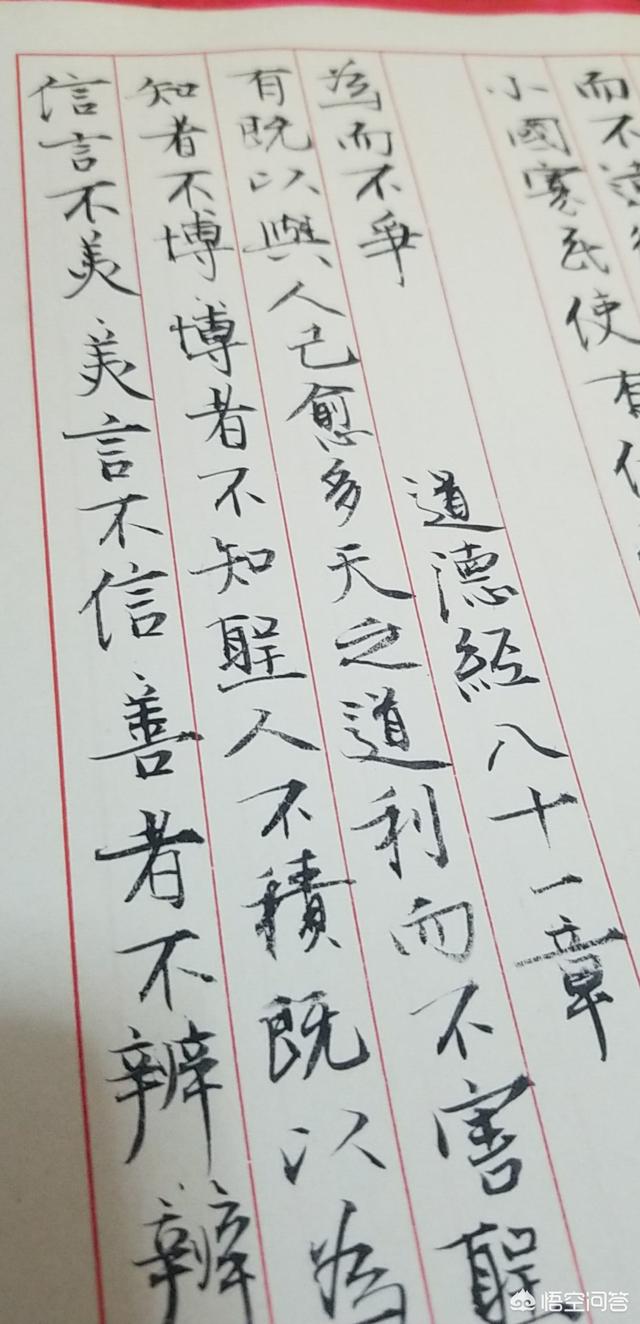 信言不美美言不信善者不辨辨
知者不博博者不知聖人不積既以為
有既以與人己愈多天之道利而不害聖
為而不爭 道德經八十一章
小國寡民使有什
而不遠
悟空问答